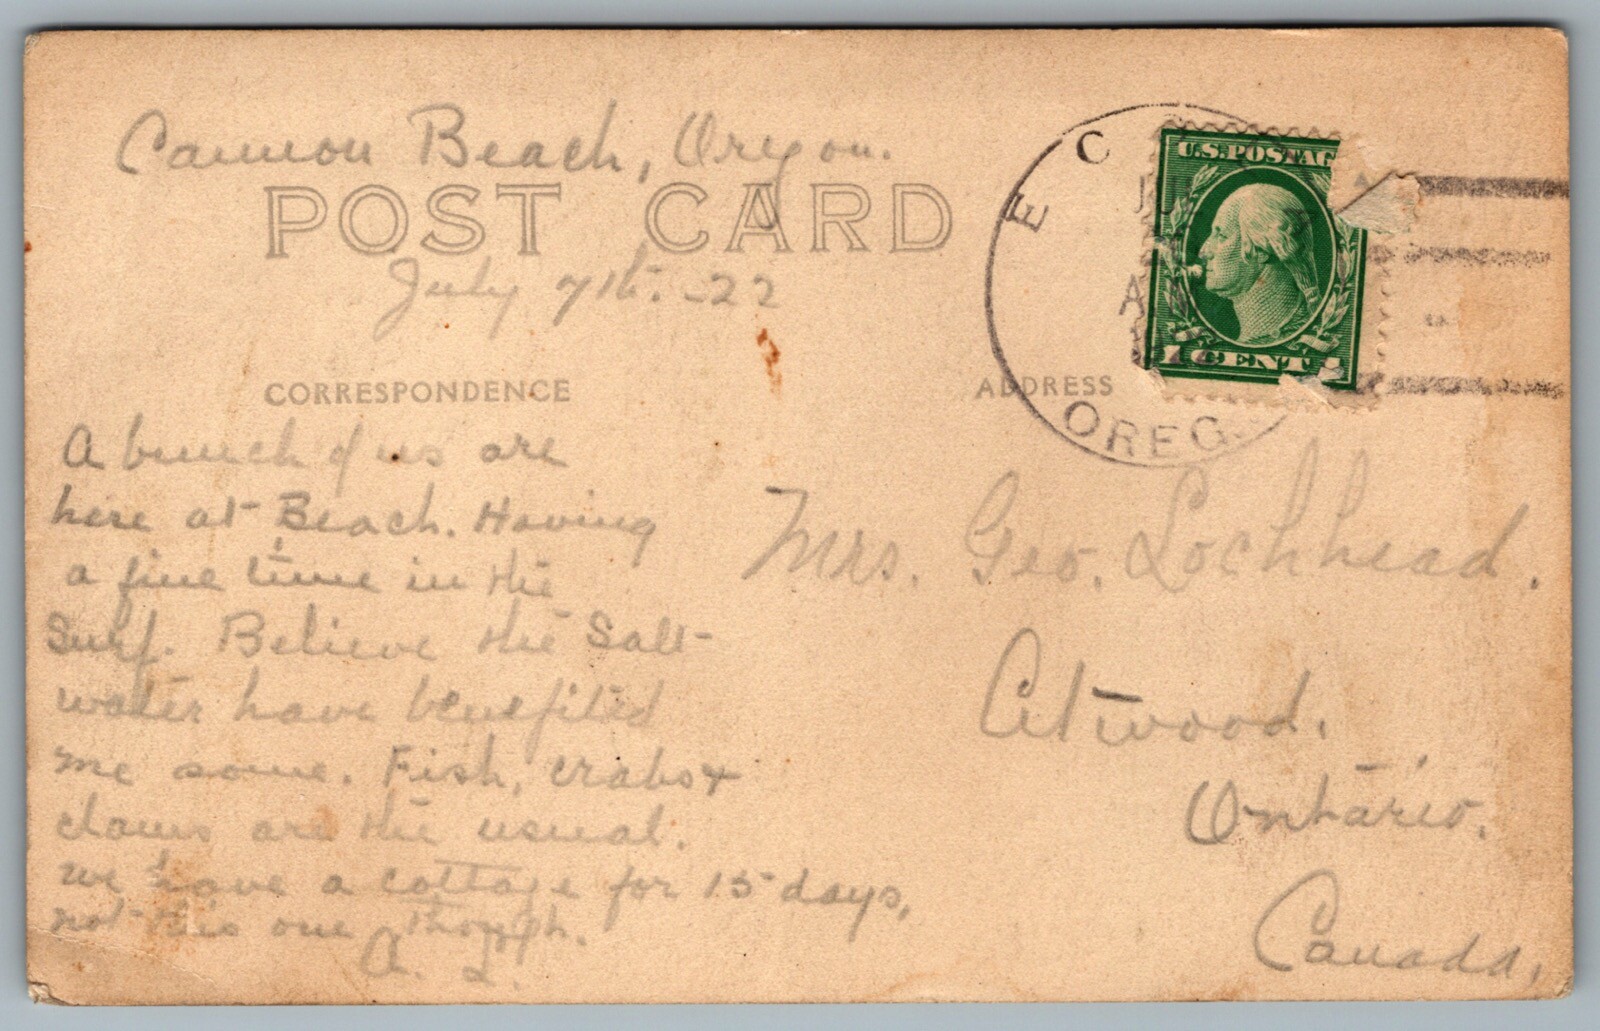 Cannon Beach, Oregon.
POST CARD
July 7th. -22
CORRESPONDENCE
A bunch of us are
here at Beach. Having
a fine time in the
Surf. Believe the Salt
water have benefited
me some. Fish, crabs &
clams are the usual.
we have a cottage for 15 days,
not this one though.
A. L.
E C
OREG.
U.S.POSTAG
1 CENT 1
ADDRESS
Mrs. Geo. Lochhead.
Atwood.
Ontario.
Canada,